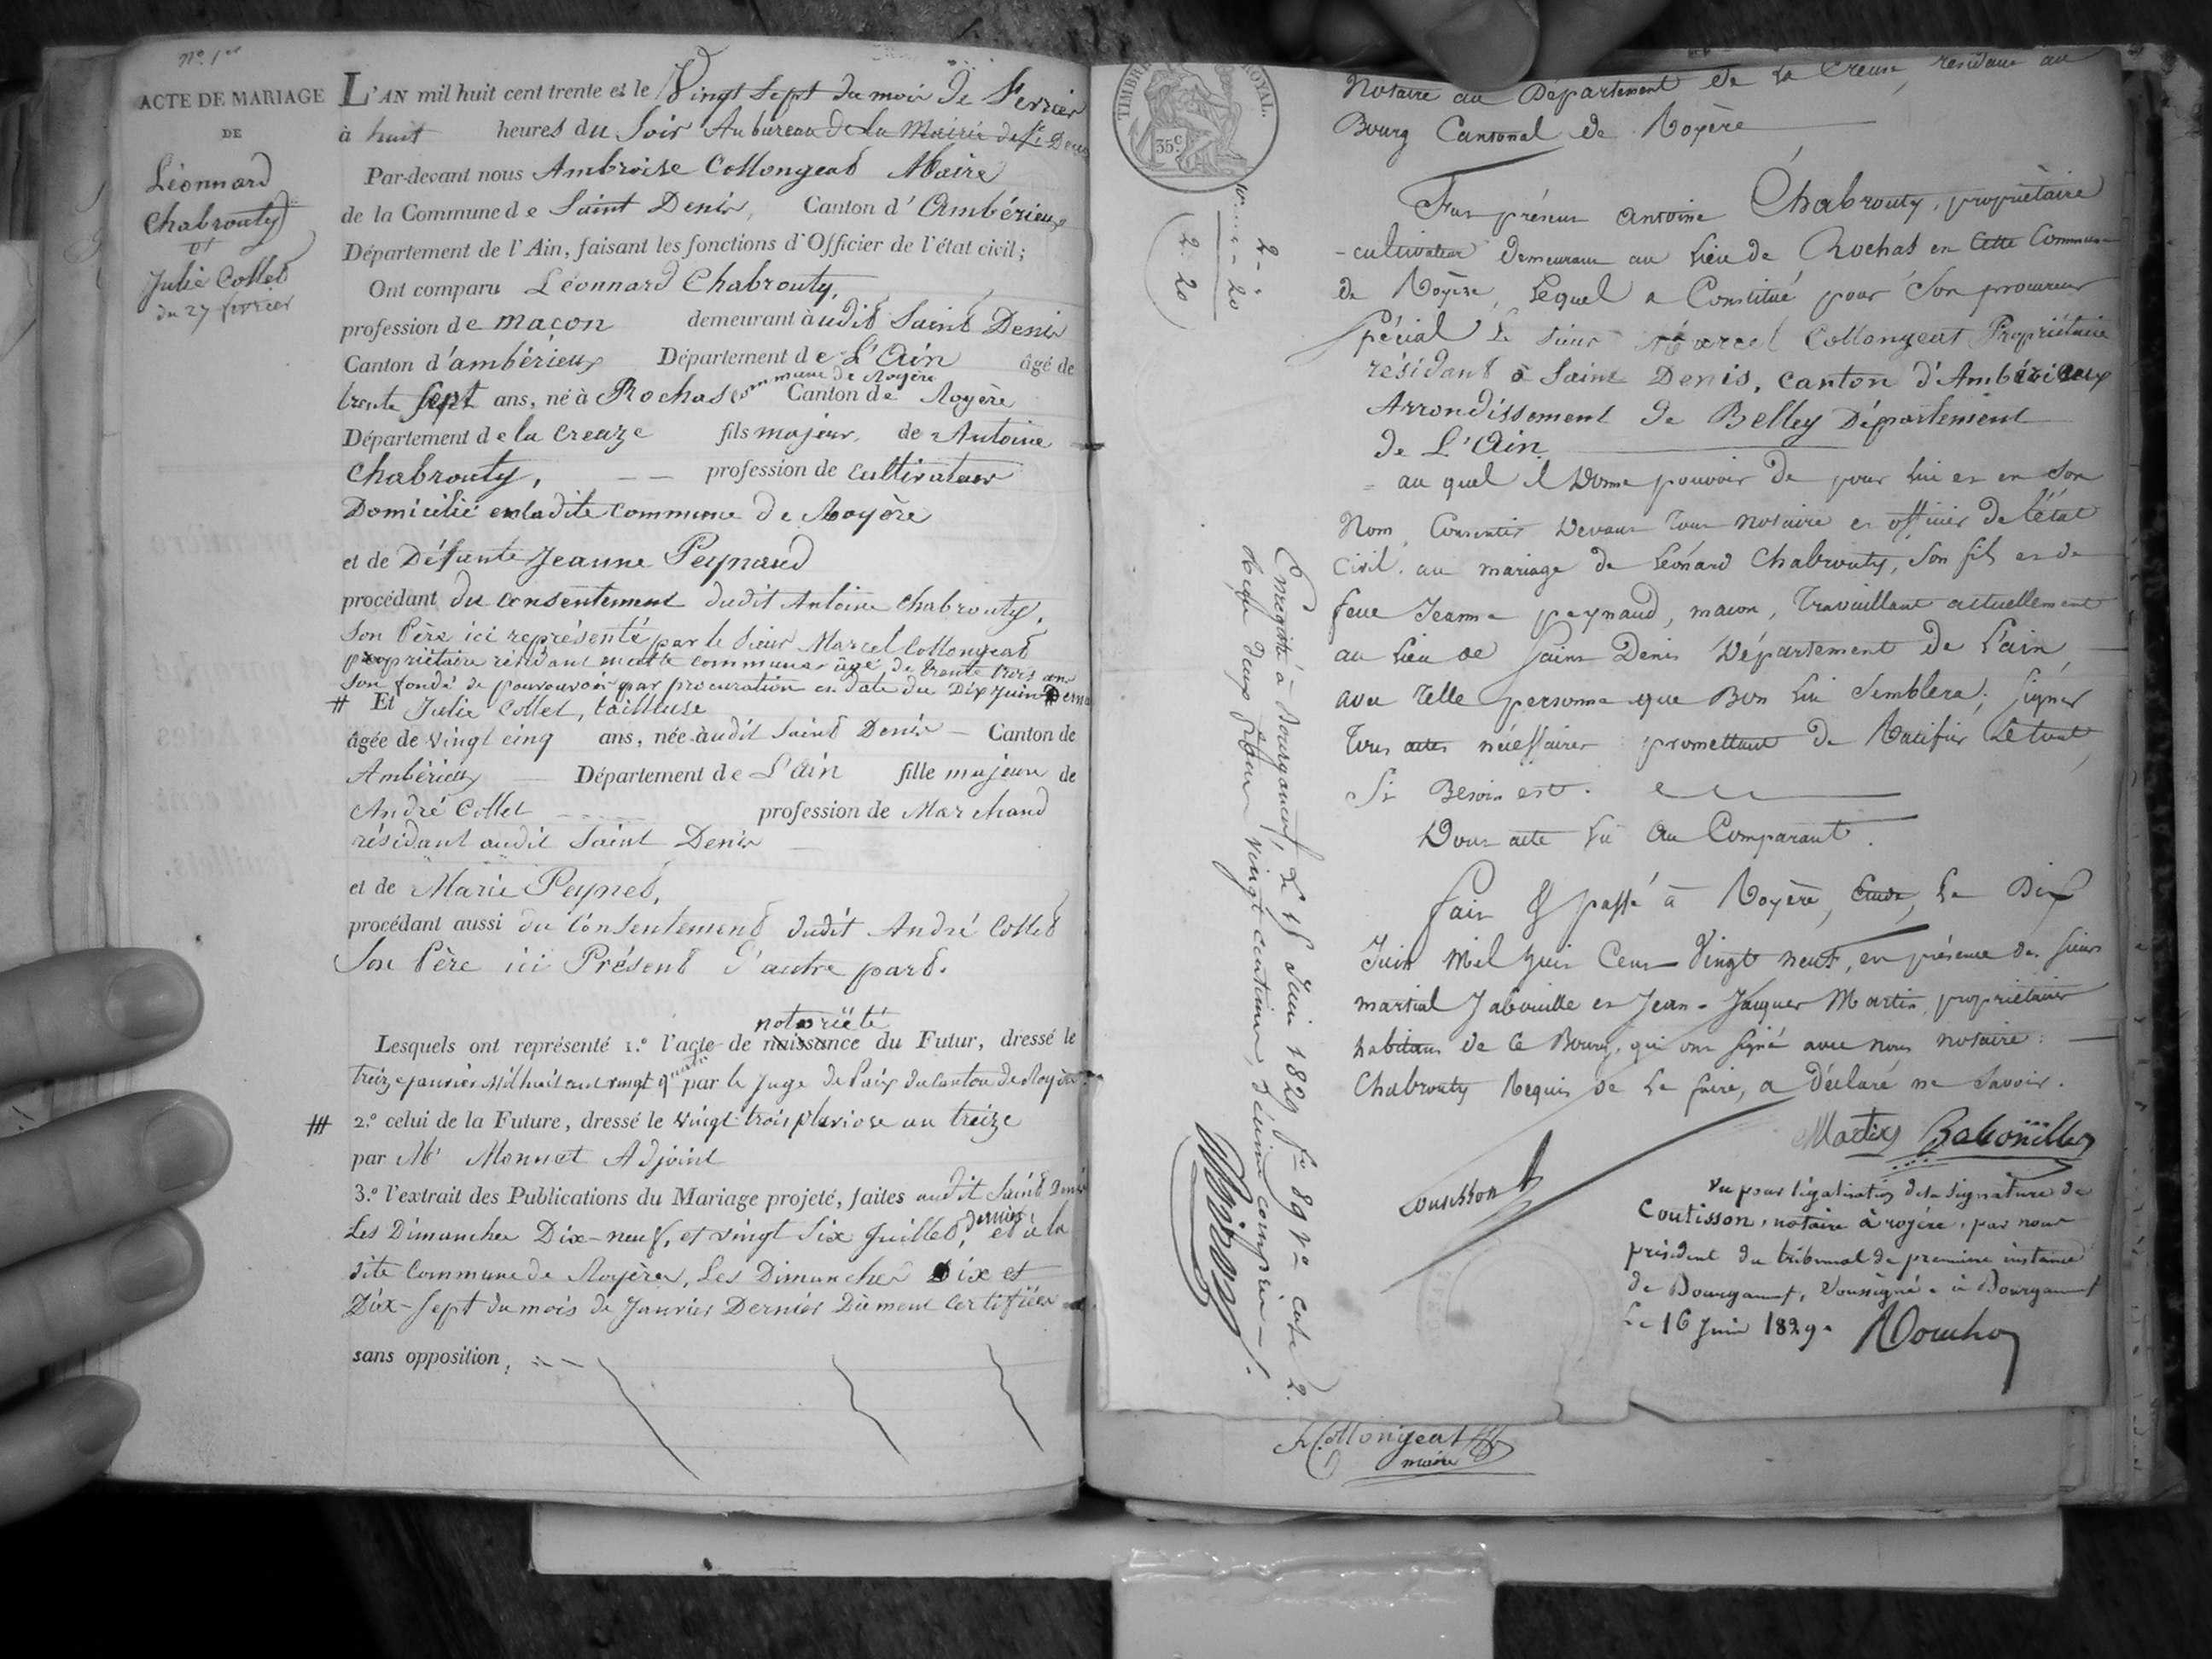 N° 1er
ACTE DE MARIAGE
DE
Léonnard
Chabrouty
et
Julie Collet
du 27 fevrier
L'AN mil huit cent trente et le Vingt sept du mois de Fevrier
à huit heures du Soir Au bureau de la Mairie de St Denis
Par-devant nous Ambroise Collongeat Maire
de la Commune de Saint Denis, Canton d'Ambérieux
Département de l'Ain, faisant les fonctions d'Officier de l'état civil;
Ont comparu Léonnard Chabrouty,
profession de maçon demeurant audit Saint Denis
Canton d'ambérieux Département de L'Ain âgé de
trente sept ans, né à Rochas commune de Royère Canton de Royère
Département de la Creuze fils majeur, de Antoine
Chabrouty, profession de cultivateur
Domicilié en ladite commune de Royère
et de Défunte Jeanne Peynaud
procédant du consentement dudit Antoine Chabrouty,
Son Père ici représenté par le Sieur Marcel Collongeat
propriétaire résidant en cette commune âgé de trente trois ans
Son fondé de pouvouvoir par procuration en date du Dix Juin Dernier
# Et Julie Collet, tailleuse
âgée de vingt cinq ans, née audit Saint Denis — Canton de
Ambérieux — Département de L'ain fille majeure de
André Collet profession de Marchand
résidant audit Saint Denis
et de Marie Peynet,
procédant aussi du Consentement dudit André Collet
Son Père ici Présent D'autre part.
notoriété
Lesquels ont représenté 1.° l'acte de naissance du Futur, dressé le
treize janvier Mil huit cent vingt par le Juge de Paix du Canton de Royère
# 2.° celui de la Future, dressé le vingt trois pluviose an treize
par Mr Monnet Adjoint
3.° l'extrait des Publications du Mariage projeté, faites audit Saint Denis
Les Dimanches Dix-neuf, et vingt Six Juillet, dernier et à la
dite Commune de Royère, Les Dimanches Dix et
Dix-Sept du mois de Janvier Dernier Dûment certifiées
sans opposition,
TIMBRE ROYAL.
35c
2 - 20
(2 20)
Enregistré à Bourganeuf, le 15 Juin 1829 fo 89 Vo case 2.
Reçu deux francs vingt centimes, décime compris.
Notaire au Département de la Creuse, résidant au
Bourg Cantonal de Royère
Fut présent Antoine Chabrouty, propriétaire
-cultivateur demeurant au lieu de Rochas en cette Commune
de Royère, lequel a Constitué pour son procureur
Spécial le sieur Marcel Collongeat Propriétaire
résidant à Saint Denis, canton d'Ambérieux
Arrondissement de Belley Département
de L'Ain
au quel il Donne pouvoir de pour lui et en son
Nom, Consentir Devant tous notaire et officier de l'état
Civil, au mariage de Léonard Chabrouty, son fils et de
feue Jeanne peynaud, macon, travaillant actuellement
au lieu de Saint Denis Département de L'ain
avec telle personne que Bon lui semblera; signer
tous actes nécessaires promettant de Ratifier le tout,
Si Besoin est.
Dont acte Lu Au Comparant.
Fait & passé à Royère, Etude, Le Dix
Juin Mil huit Cent Vingt neuf, en présence des sieurs
martial Jabouille et Jean-Jacques Martin, propriétaires
habitans de ce Bourg, qui ont signé avec nous notaire:
Chabrouty Requis de le faire, a Déclaré ne savoir.
Martin Jabouille
Coutisson
Vu pour légalisation de la signature de
Coutisson, notaire à royère, par nous
président du tribunal de premiere instance
de Bourganeuf, soussigné. à Bourganeuf
Le 16 Juin 1829.
A Collongeat
maire